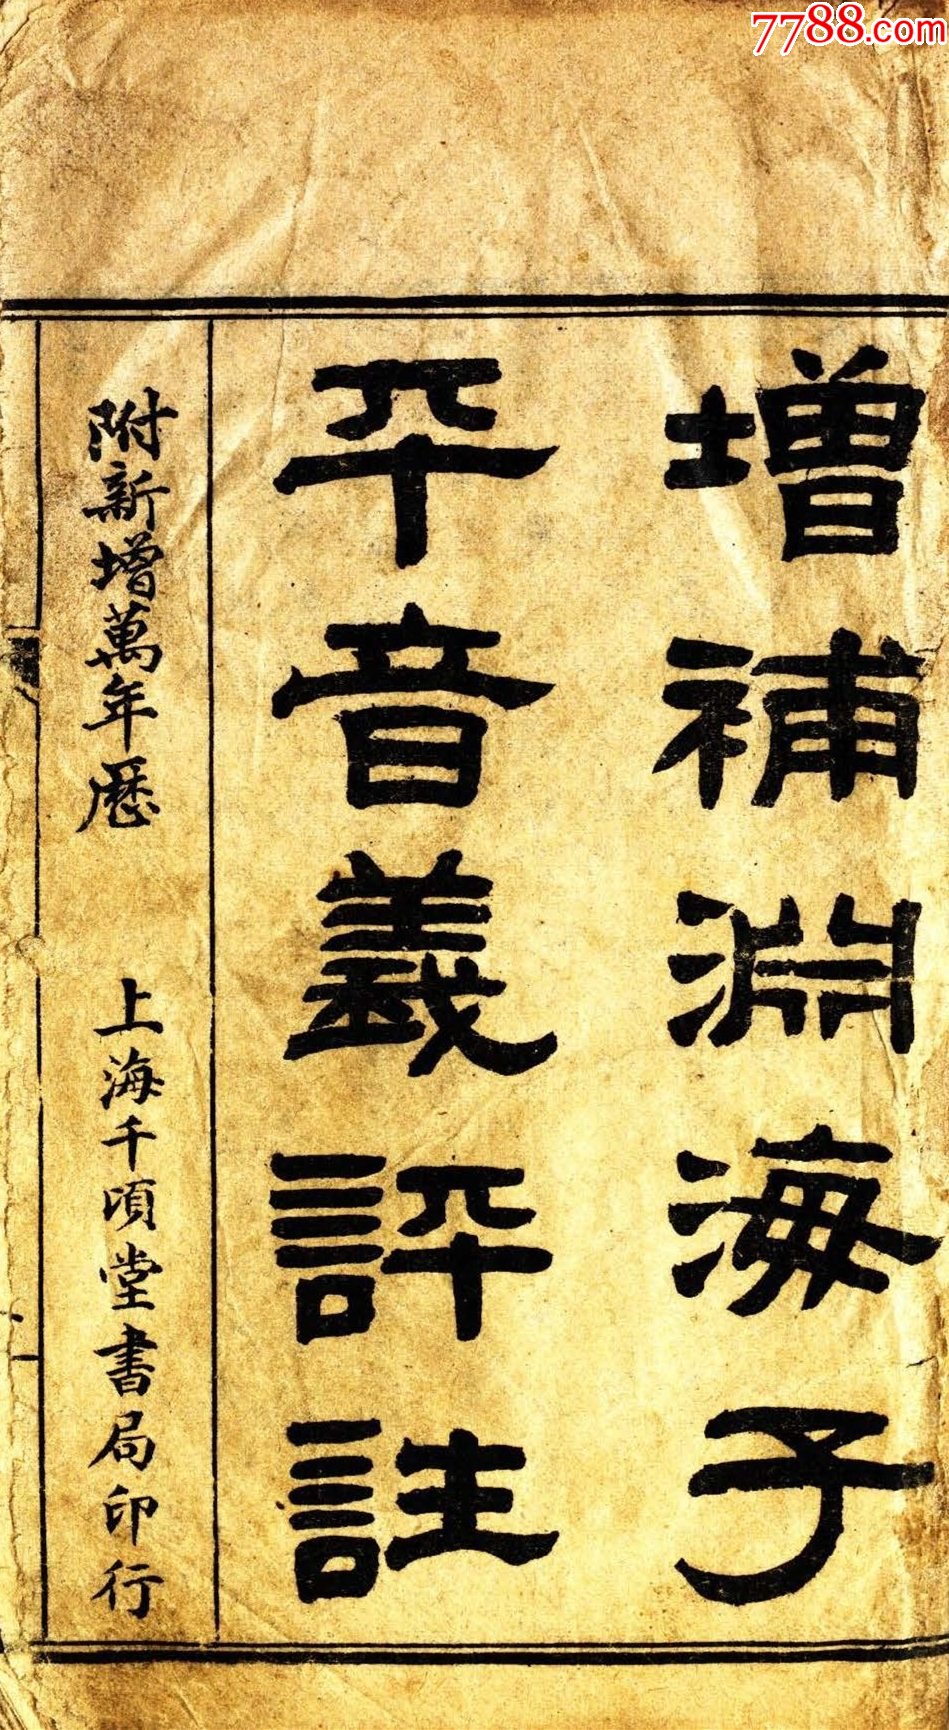 7788.com
增補淵海子
平音義評註
附新增萬年曆 上海千頃堂書局印行